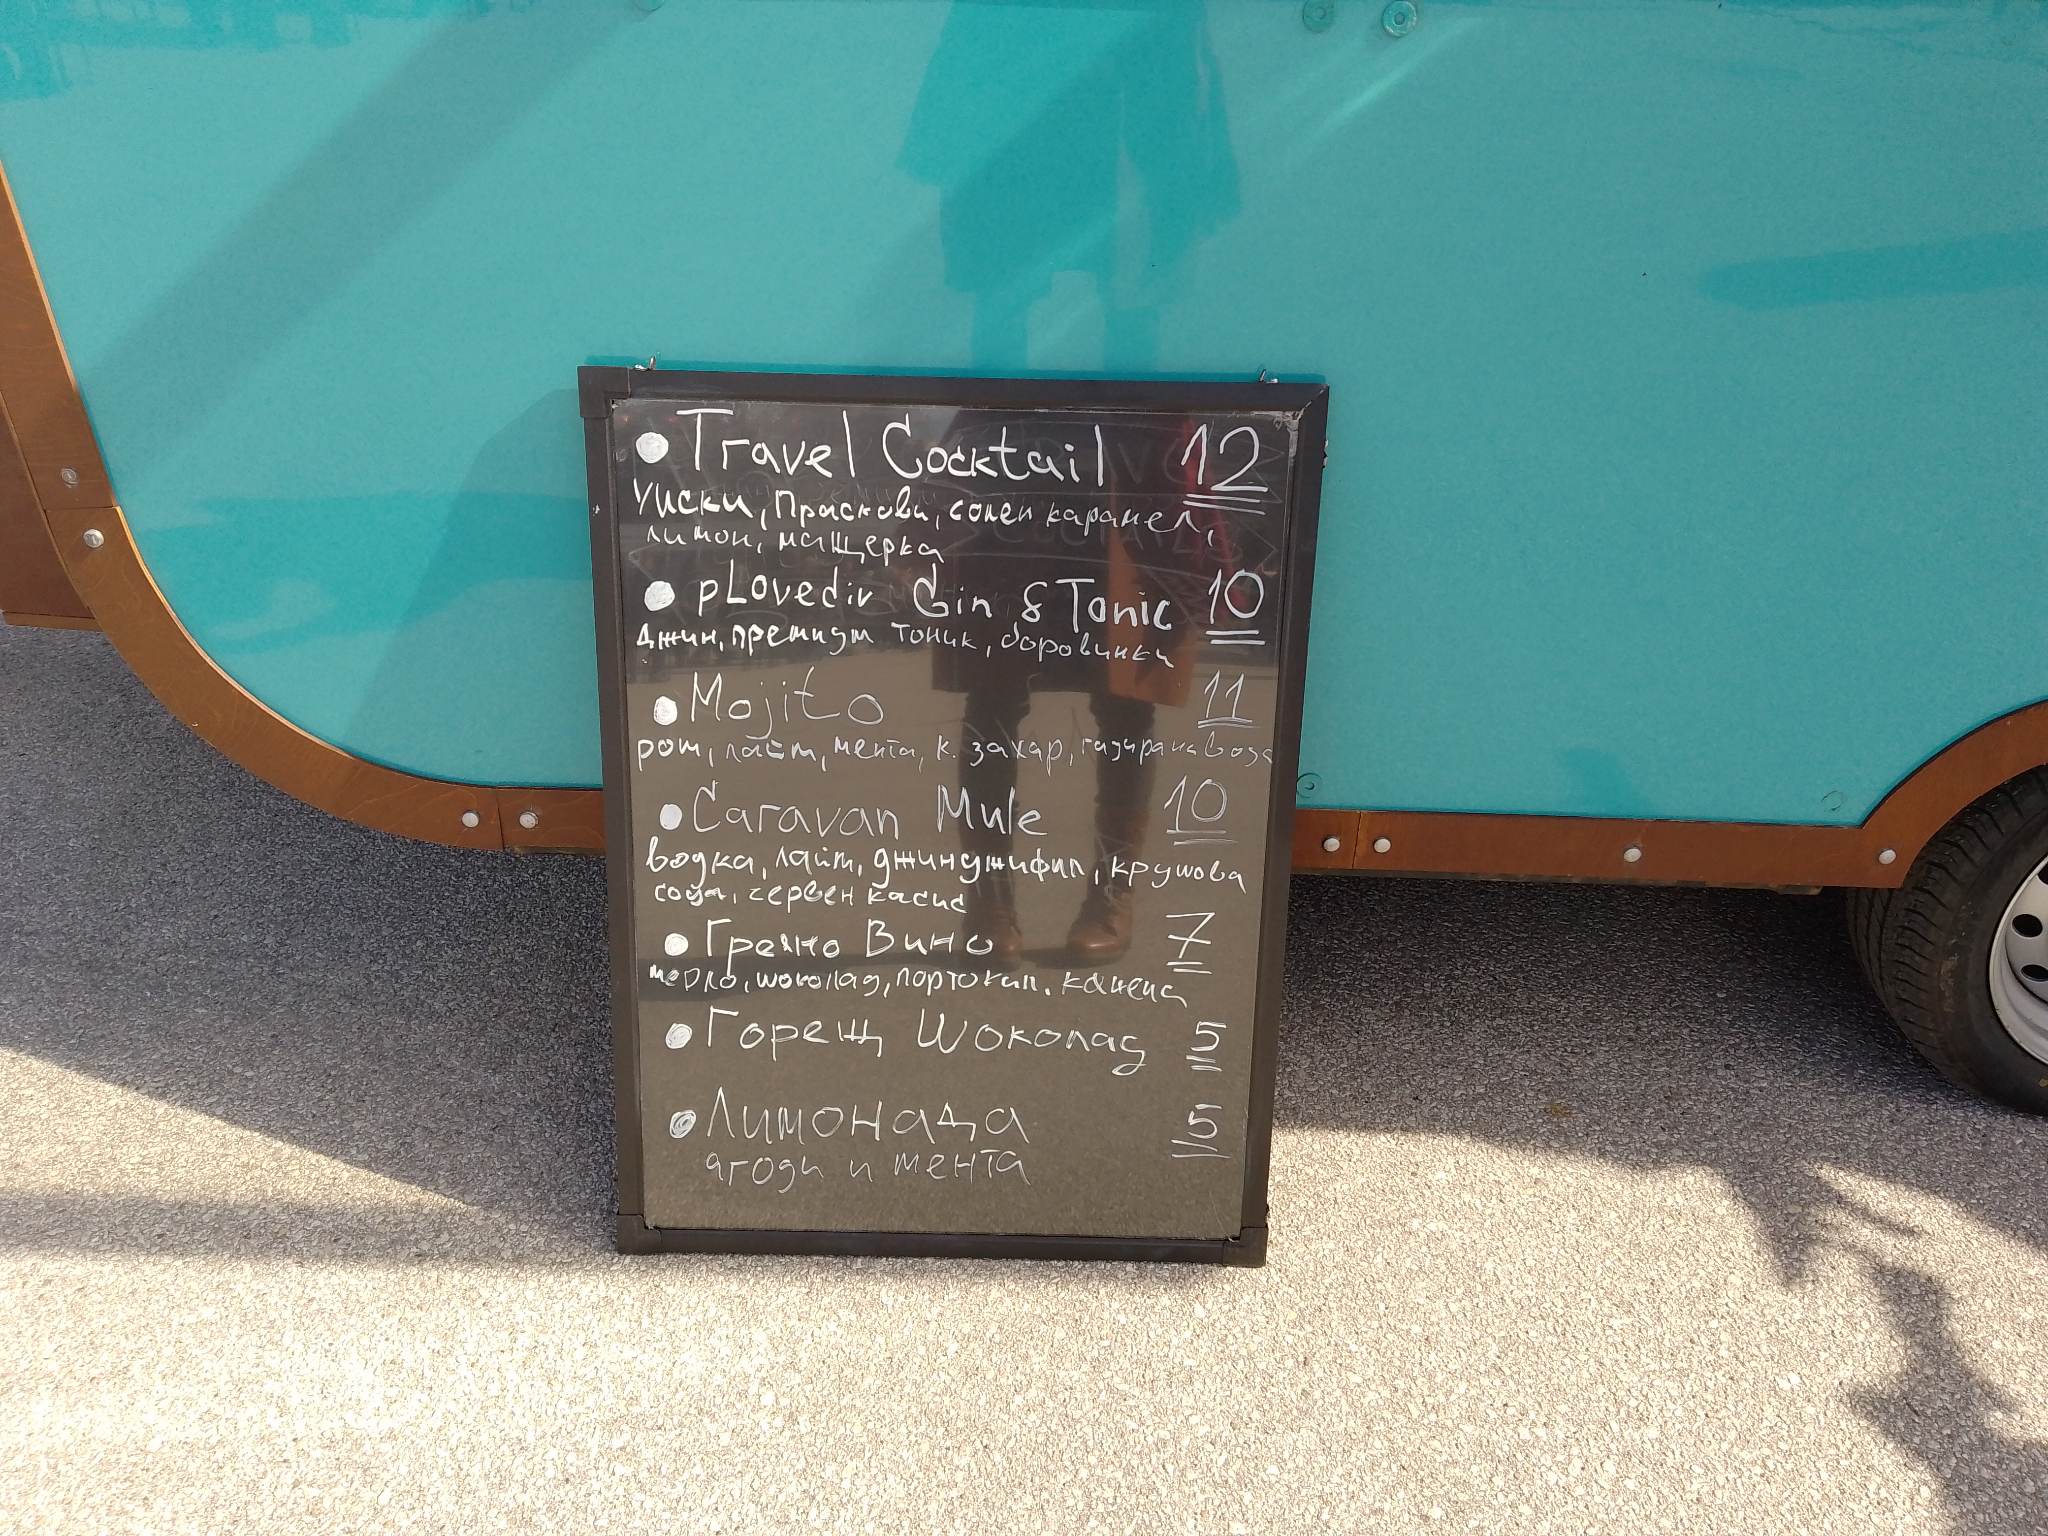 Travel Cocktail 12
Уиски, Праскови, солен карамел,
лимон, мащерка
pLovediv Gin & Tonic 10
Джин, премиум тоник, боровинки
Mojito 11
ром, лайм, мента, к. захар, газирана вода
Caravan Mule 10
водка, лайм, джинджифил, крушова
сода, червен касис
Греяно Вино 7
мерло, шоколад, портокал, канела
Горещ Шоколад 5
Лимонада 5
ягоди и мента